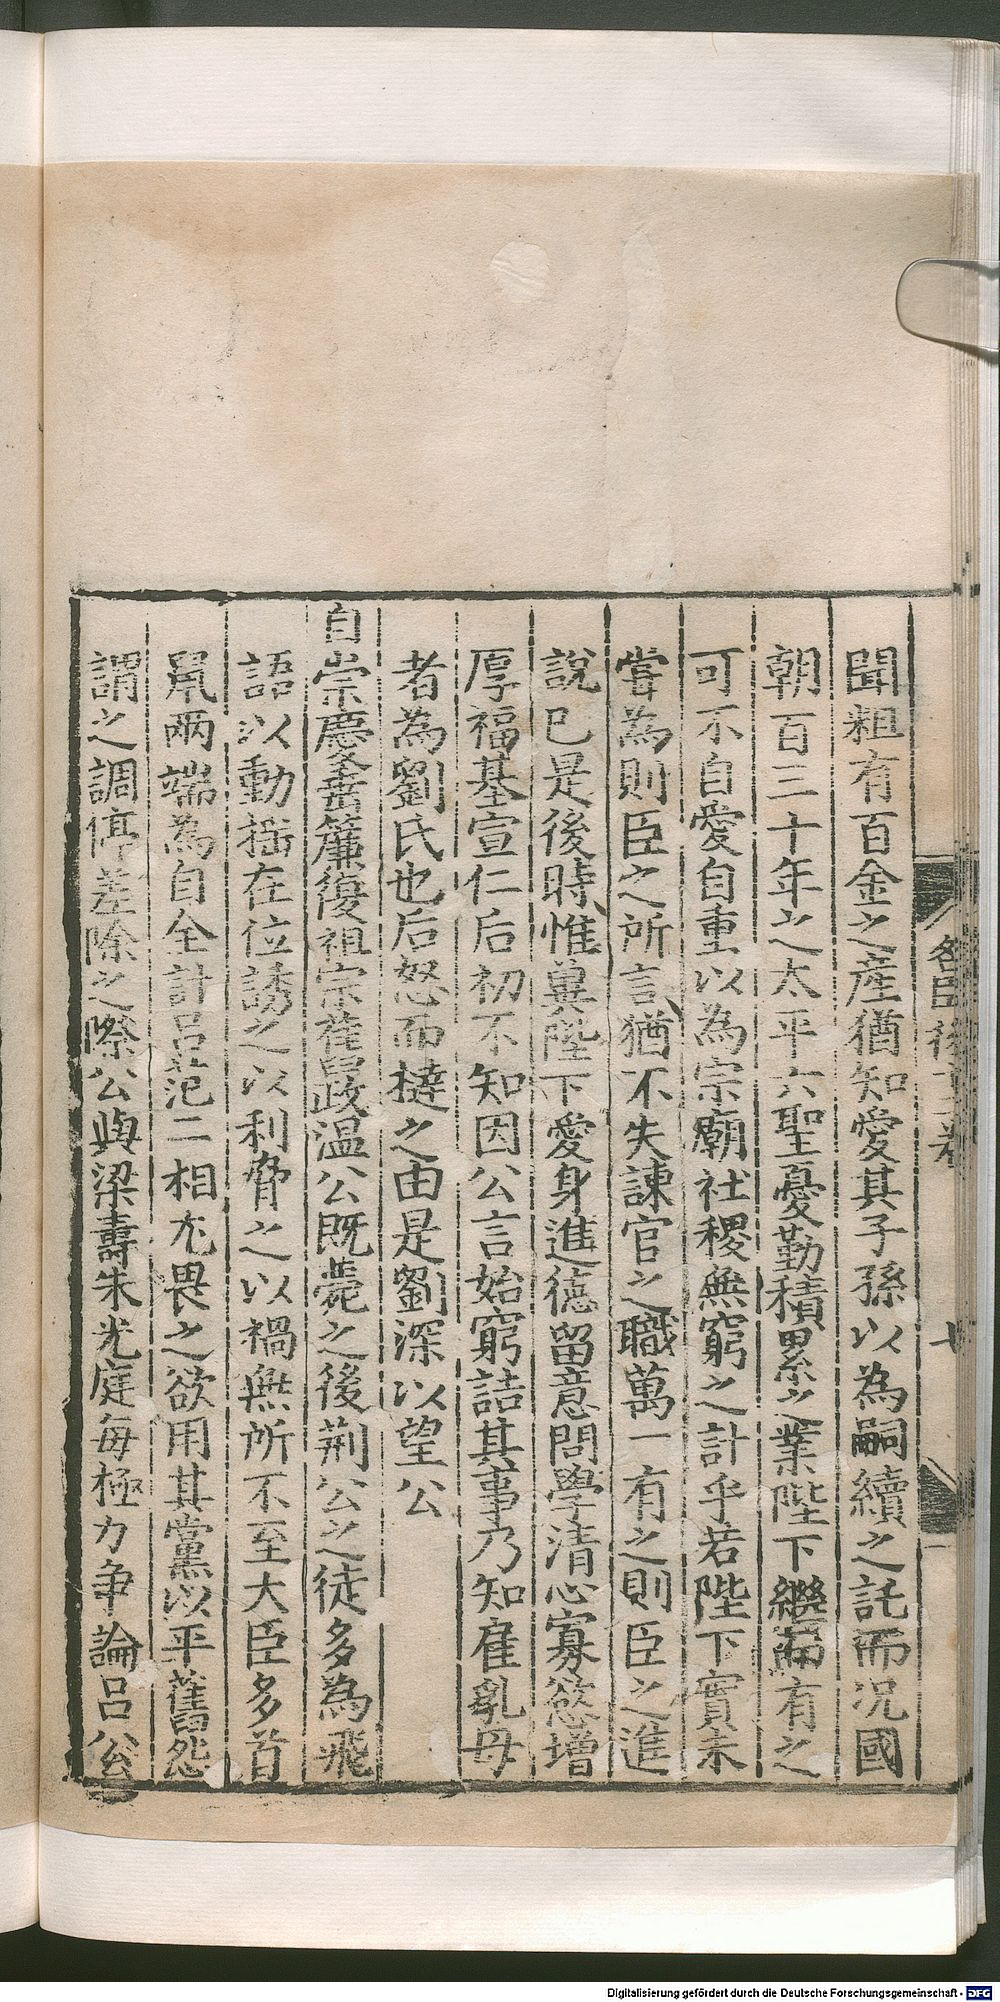 聞粗有百金之産猶知愛其子孫以為嗣續之託而况國
朝一百三十年之太平六聖憂勤積累之業陛下繼而有之
可不自愛自重以為宗廟社稷無窮之計乎若陛下實未
嘗為則臣之所言猶不失諫官之職萬一有之則臣之進
說已是後時惟兾陛下愛身進德留意問學清心寡慾增
厚福基宣仁后初不知因公言始窮詰其事乃知雇乳母
者為劉氏也后怒而撻之由是劉深以望公
自崇慶垂簾復祖宗舊政温公既薨之後荆公之徒多為飛
語以動揺在位誘之以利脅之以禍無所不至大臣多首
鼠兩端為自全計呂范二相尤畏之欲用其黨以平舊怨
謂之調停差除之際公與梁燾朱光庭每極力争論呂公
名臣後 卷
Digitalisierung gefördert durch die Deutsche Forschungsgemeinschaft - DFG